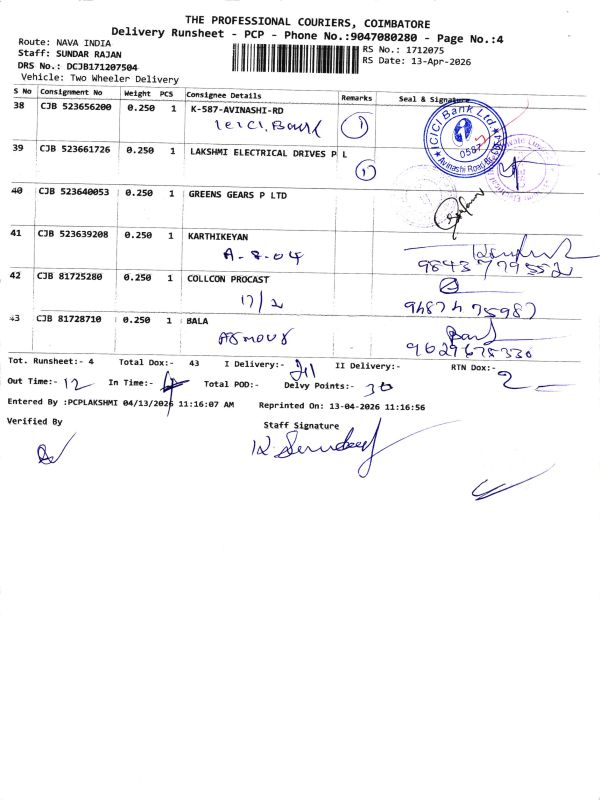 THE PROFESSIONAL COURIERS, COIMBATORE
Delivery Runsheet - PCP - Phone No.:9047080280 - Page No.:4
Route: NAVA INDIA
Staff: SUNDAR RAJAN
DRS No.: DCJB171207504
Vehicle: Two Wheeler Delivery
RS No.: 1712075
RS Date: 13-Apr-2026
S No Consignment No Weight PCS Consignee Details Remarks Seal & Signature
38 CJB 523656200 0.250 1 K-587-AVINASHI-RD
ICICI Bank 1
ICICI Bank Ltd
0587
Avinashi Road Br.
39 CJB 523661726 0.250 1 LAKSHMI ELECTRICAL DRIVES P L
1
40 CJB 523640053 0.250 1 GREENS GEARS P LTD
41 CJB 523639208 0.250 1 KARTHIKEYAN
A-8-04
98437 79552
42 CJB 81725280 0.250 1 COLLCON PROCAST
17/2
94874 75987
43 CJB 81728710 0.250 1 BALA
9629678330
Tot. Runsheet:- 4 Total Dox:- 43 I Delivery:- 41 II Delivery:- RTN Dox:- 2
Out Time:- 12 In Time:- Total POD:- Delvy Points:- 30
Entered By :PCPLAKSHMI 04/13/2026 11:16:07 AM Reprinted On: 13-04-2026 11:16:56
Verified By
Staff Signature